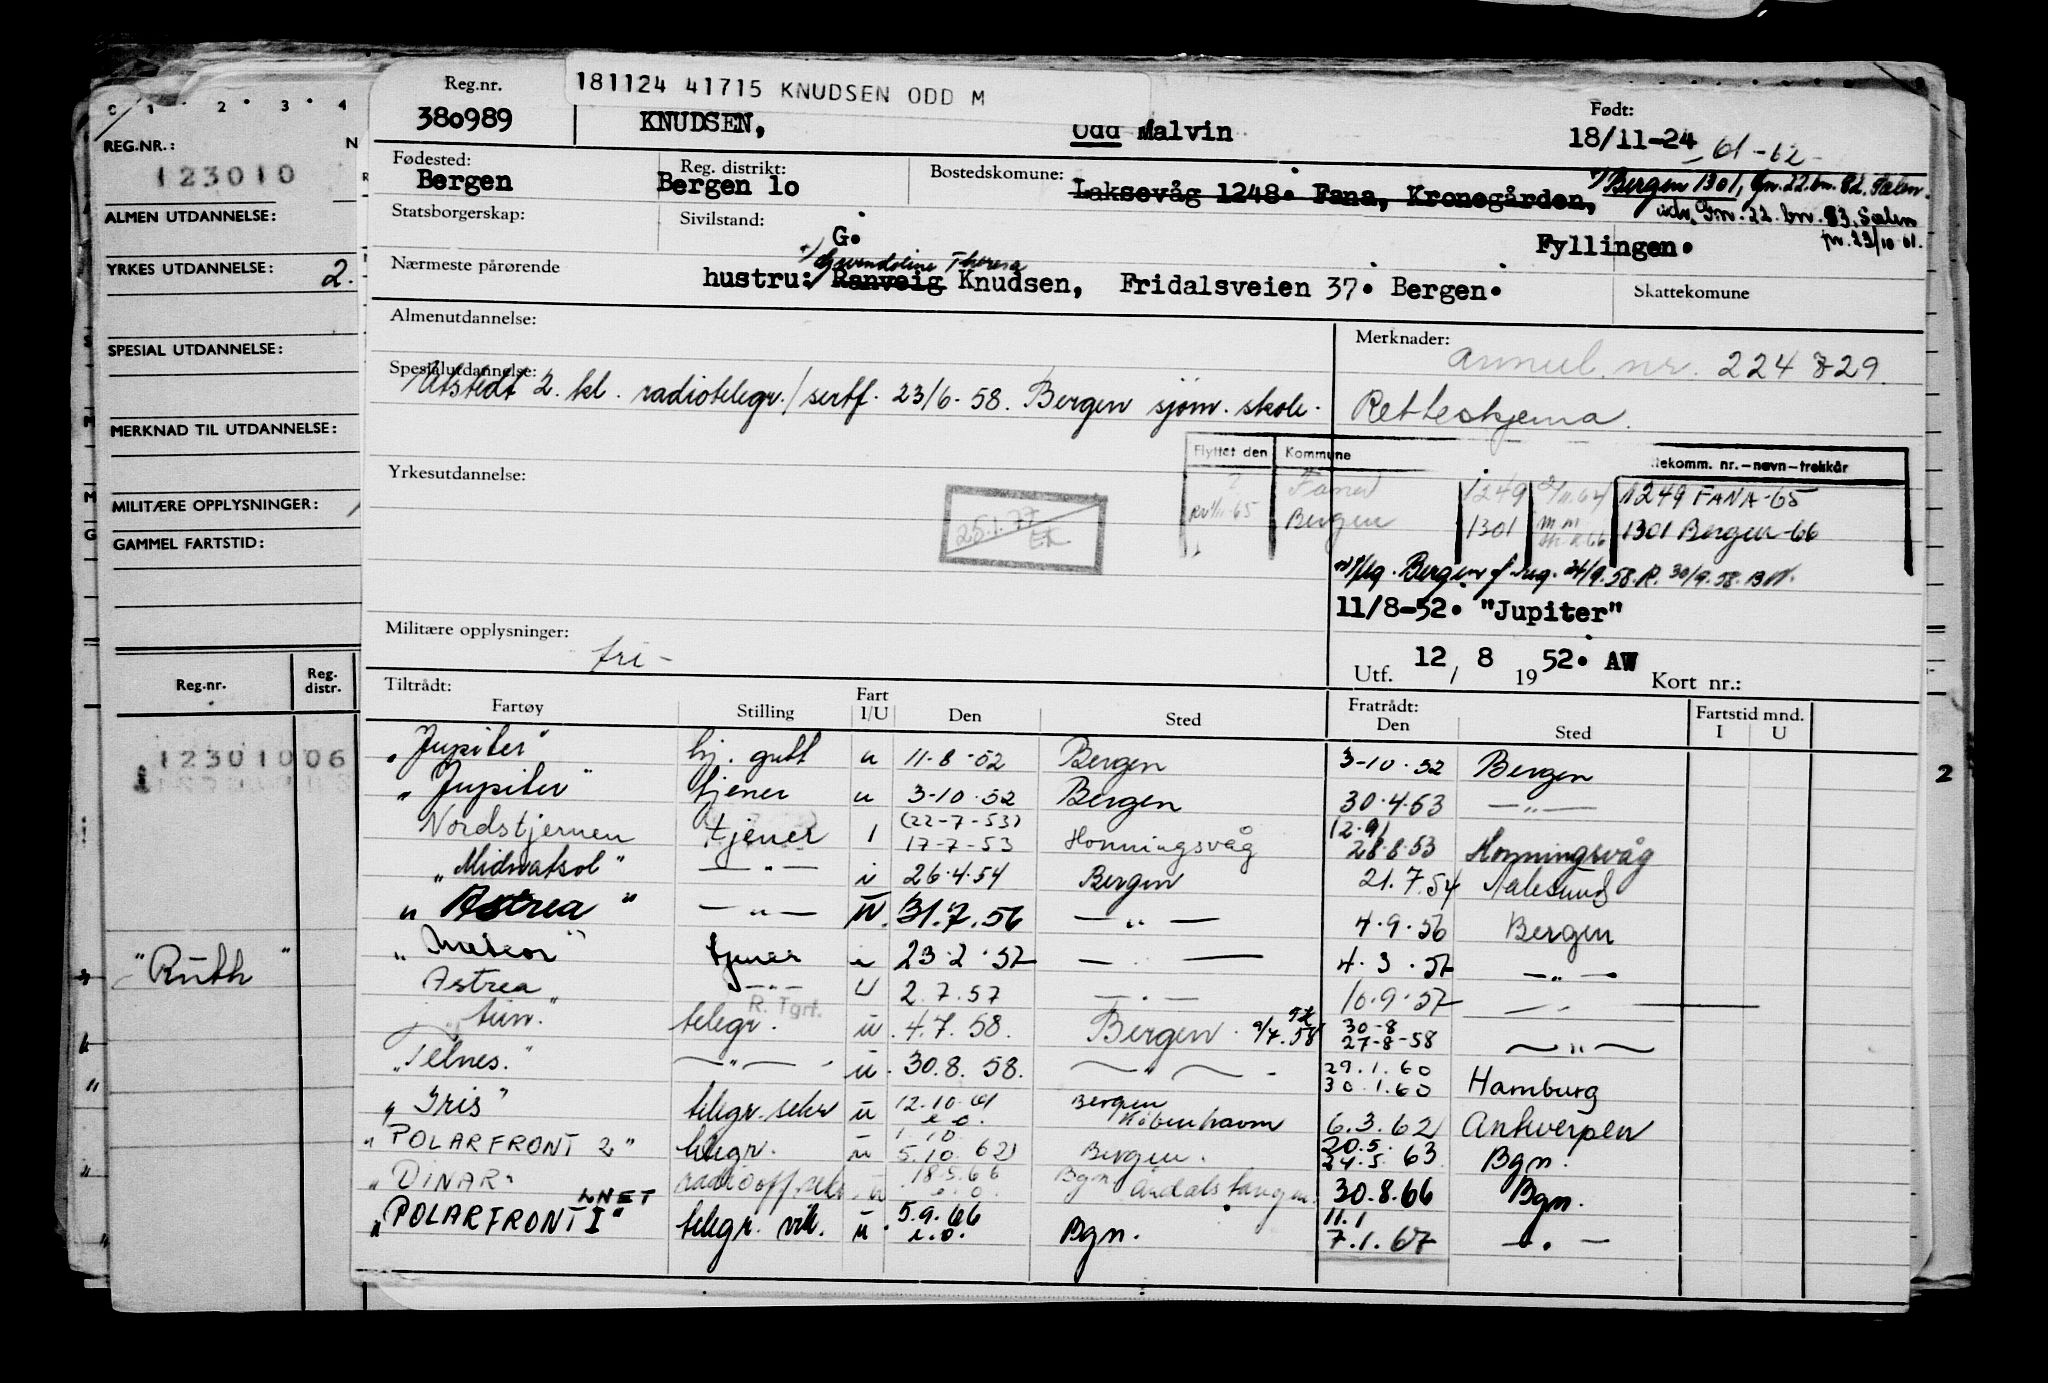 C 1 • 2 • 3 • 4
REG.NR.: N
123010
ALMEN UTDANNELSE:
YRKES UTDANNELSE: 2.
SPESIAL UTDANNELSE:
MERKNAD TIL UTDANNELSE:
MILITÆRE OPPLYSNINGER:
GAMMEL FARTSTID:
Reg.nr. Reg. distr.
12301006
"Ruth"
181124 41715 KNUDSEN ODD M
Reg.nr. Født:
380989 KNUDSEN, Odd Malvin 18/11-24
61-62-
Fødested: Reg. distrikt: Bostedskomune:
Bergen Bergen 10 Laksevåg 1248. Fana, Kronegården, Bergen 1301, Gn. 22. bn. 82. Sælen
Gn. 22 bn. 83. Sælen
Statsborgerskap: Sivilstand: 23/10 61.
G. Fyllingen.
Nærmeste pårørende Gwendoline Theresa
hustru: Ranveig Knudsen, Fridalsveien 37. Bergen. Skattekomune
Almenutdannelse: Merknader:
annul. nr. 224829.
Spesialutdannelse:
Utstedt 2. kl. radiotelegr./sertf. 23/6-58. Bergen sjøm. skole. Retteskjema.
Flyttet den Kommune ekomm. nr.—navn—trekkår
Yrkesutdannelse: Fana 1249 1249 FANA-65
25.1.77 Bergen 1301 1301 Bergen-66
EK
Bergen 24/9.58.R. 30/9.58.
11/8-52. "Jupiter"
Militære opplysninger: fri-
Utf. 12 / 8 1952. AW Kort nr.:
Tiltrådt: Fratrådt: Fartstid mnd.
Fartøy Stilling Fart I/U Den Sted Den Sted I U
"Jupiter" hj. gutt u 11-8-52 Bergen 3-10.52 Bergen
"Jupiter" tjener u 3-10.52 Bergen 30.4.53 —"—
(22-7-53) (2.9)
Nordstjernen tjener I 17-7-53 Honningsvåg 28.8.53 Honningsvåg
"Midnatsol" —"— i 26.4.54 Bergen 21.7.54 Aalesund
"Astrea" —"— U. 31.7.56 —"— 4.9.56 Bergen
"Meteor" tjener 23.2.57 —"— 4.3.57 —"—
Astrea —"— U 2.7.57 —"— 10.9.57 —"—
R. Tgrf. 30-8
telegr. u. 4.7.58. Bergen. 27-8-58 —"—
29.1.60
"Telnes." —"— u. 30.8.58. —"— 30.1.60 Hamburg
"Iris" telegr. sekr u 12.10.61 Bergen
e.o. København 6.3.62 Antwerpen
1.10 20.5
"POLARFRONT 2" telegr. u 5.10.62 Bergen. 24.5.63 Bgn.
"DINAR" radiooff. u 18.5.66 Bgn.
e.o. Årdalstangen 30.8.66 Bgn.
"POLARFRONT I" telegr. vik. u 5.9.66 11.1
e.o. Bgn. 7.1.67 —"—
2